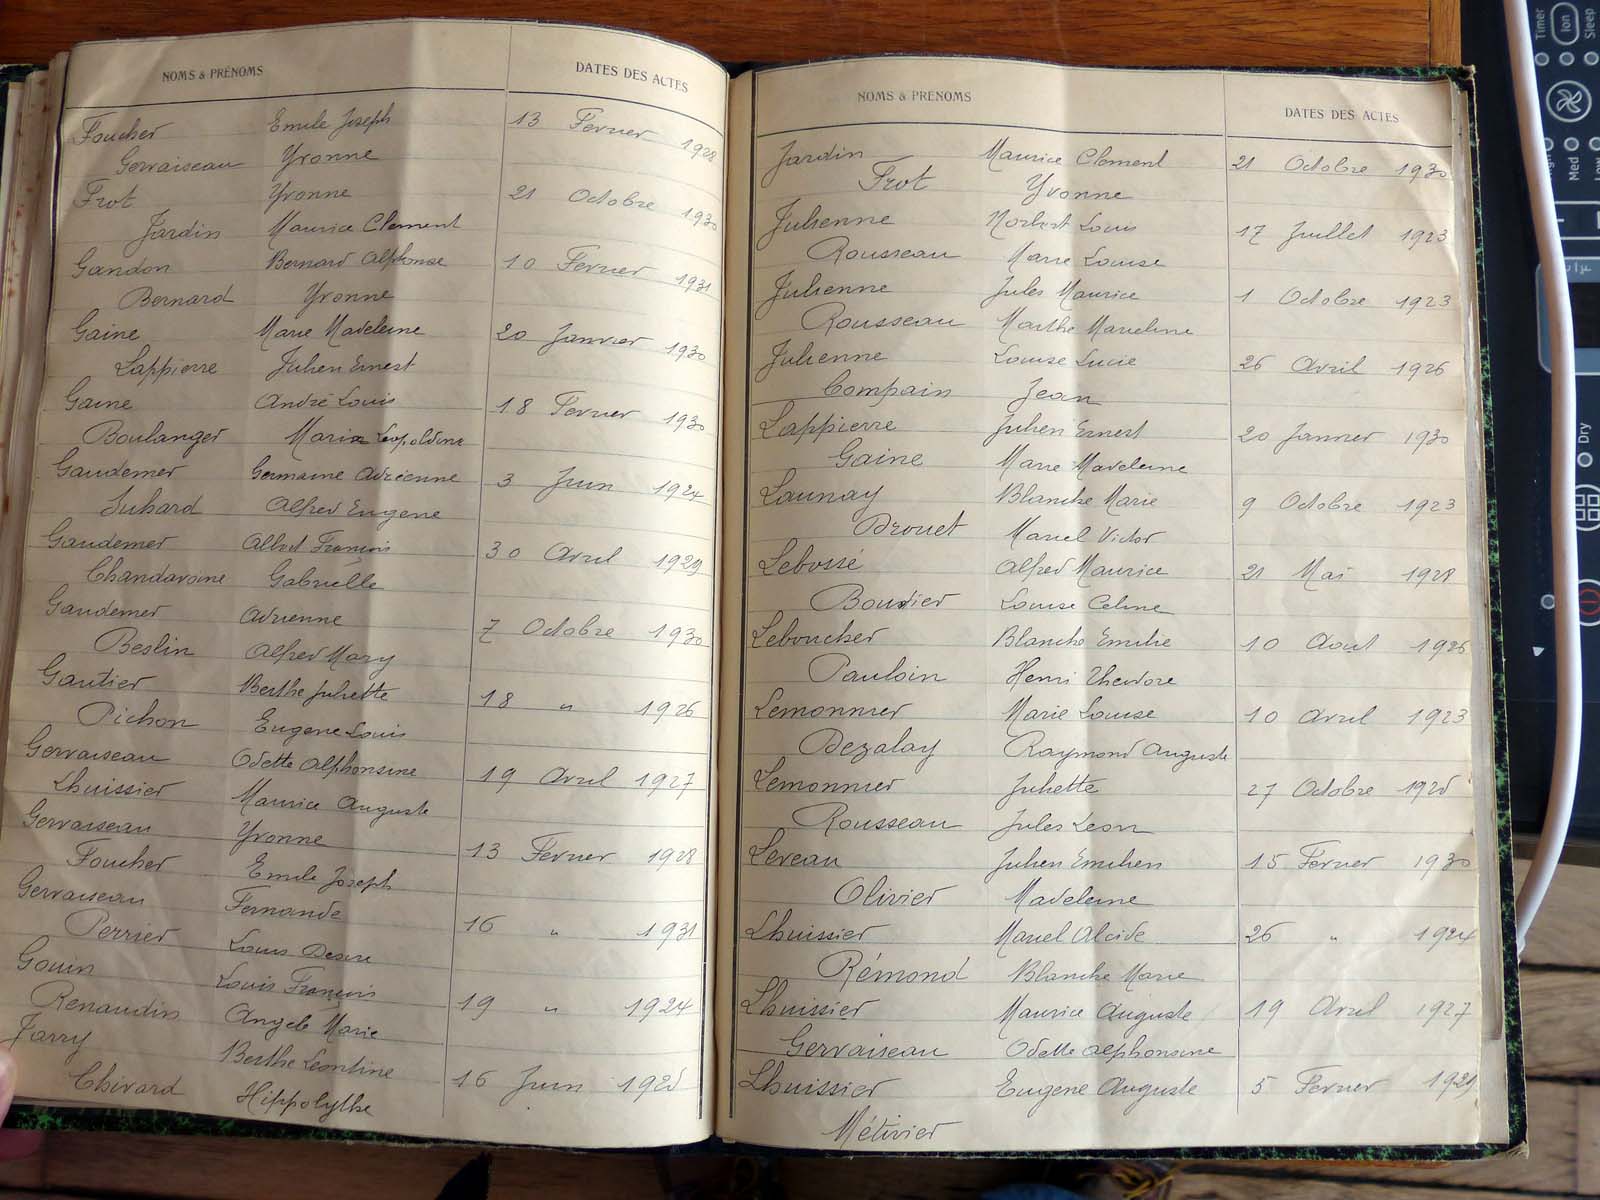 NOMS & PRÉNOMS DATES DES ACTES
Foucher Emile Joseph 13 Fevrier 1928
Gervaiseau Yvonne
Frot Yvonne 21 Octobre 1930
Jardin Maurice Clement
Gandon Bernard Alphonse 10 Fevrier 1931
Bernard Yvonne
Gaine Marie Madeleine 20 Janvier 1930
Lappierre Julien Ernest
Gaine André Louis 18 Fevrier 1930
Boulanger Maria Leopoldine
Gaudemer Germaine Adrienne 3 Juin 1924
Juhard Alfred Eugene
Gaudemer Albert François 30 Avril 1929
Chandavoine Gabrielle
Gaudemer Adrienne 7 Octobre 1930
Beslin Alfred Mary
Gautier Berthe Juliette 18 " 1926
Pichon Eugene Louis
Gervaiseau Odette Alphonsine 19 Avril 1927
Lhuissier Maurice Auguste
Gervaiseau Yvonne 13 Fevrier 1928
Foucher Emile Joseph
Gervaiseau Fernande 16 " 1931
Perrier Louis Desire
Gouin Louis François 19 " 1924
Renaudin Angele Marie
Jarry Berthe Leontine 16 Juin 1925
Chivard Hippolythe
NOMS & PRÉNOMS DATES DES ACTES
Jardin Maurice Clement 21 Octobre 1930
Frot Yvonne
Julienne Norbert Louis 17 Juillet 1923
Rousseau Marie Louise
Julienne Jules Maurice 1 Octobre 1923
Rousseau Marthe Marceline
Julienne Louise Lucie 26 Avril 1926
Compain Jean
Lappierre Julien Ernest 20 Janvier 1930
Gaine Marie Madeleine
Launay Blanche Marie 9 Octobre 1923
Drouet Marcel Victor
Lebossé Alfred Maurice 21 Mai 1928
Bourdier Louise Celine
Leboucher Blanche Emilie 10 Aout 1926
Pauloin Henri Theodore
Lemonnier Marie Louise 10 Avril 1923
Dezalay Raymond Auguste
Lemonnier Juliette 27 Octobre 1925
Rousseau Jules Leon
Lereau Julien Emilien 15 Fevrier 1930
Olivier Madeleine
Lhuissier Marcel Alcide 26 " 1924
Rémond Blanche Marie
Lhuissier Maurice Auguste 19 Avril 1927
Gervaiseau Odette Alphonsine
Lhuissier Eugene Auguste 5 Fevrier 1929
Métivier
Timer Ion Sleep
Med
Dry